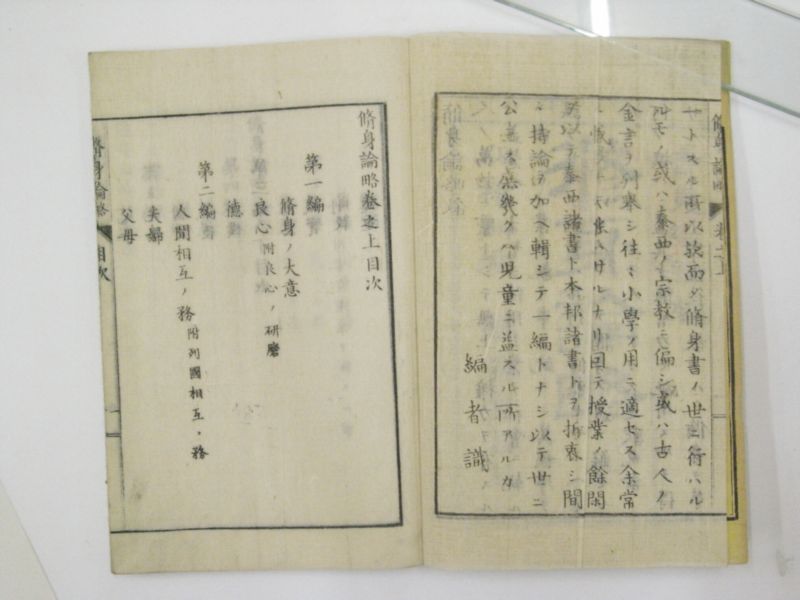 脩身論略 卷之上
サトスル所以 而〆脩身書ノ世ニ行ハル
モノ或ハ泰西ノ宗教ニ偏シ或ハ古人ノ
金言ヲ列舉シ往々小學ノ用ニ適セス余常
ナリ因テ授業ノ餘閑
ヲ以テ泰西諸書ト本邦諸書トヲ折衷シ間
々持論ヲ加ヘ輯シテ一編トナシ以テ世ニ
公ニス庶幾クハ児童ニ益スル所アルカ
編者識
脩身論略卷之上目次
第一編
脩身ノ大意
良心附良心ノ研磨
德
第二編
人間相互ノ務附列國相互ノ務
夫婦
父母
脩身論略 目次